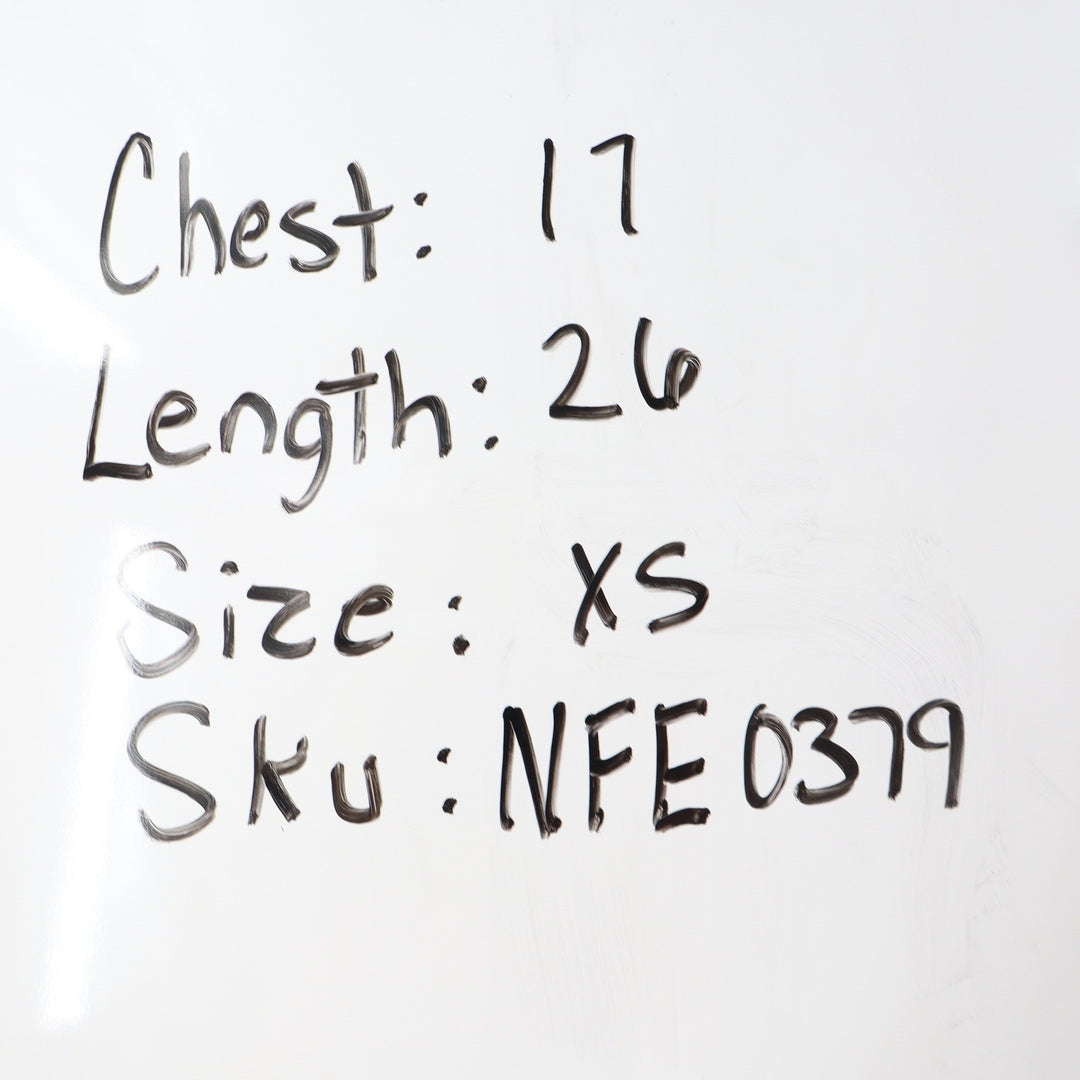 Chest: 17
Length: 26
Size: XS
Sku: NFE0379